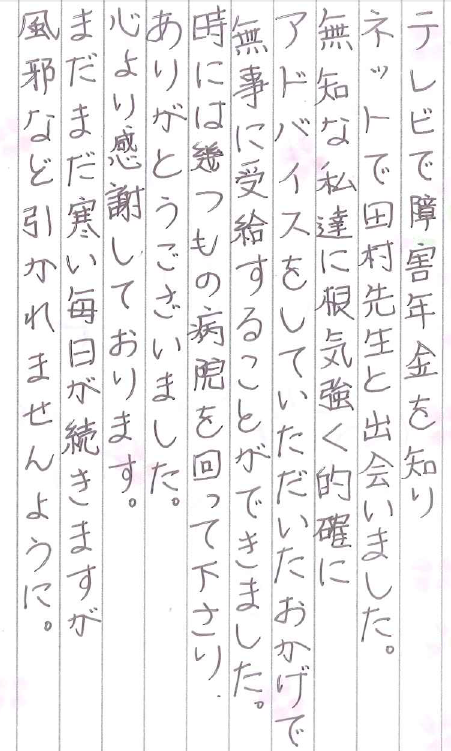 テレビで障害年金を知り
ネットで田村先生と出会いました。
無知な私達に根気強く的確に
アドバイスをしていただいたおかげで
無事に受給することができました。
時には幾つもの病院を回って下さり
ありがとうございました。
心より感謝しております。
まだまだ寒い毎日が続きますが
風邪など引かれませんように。